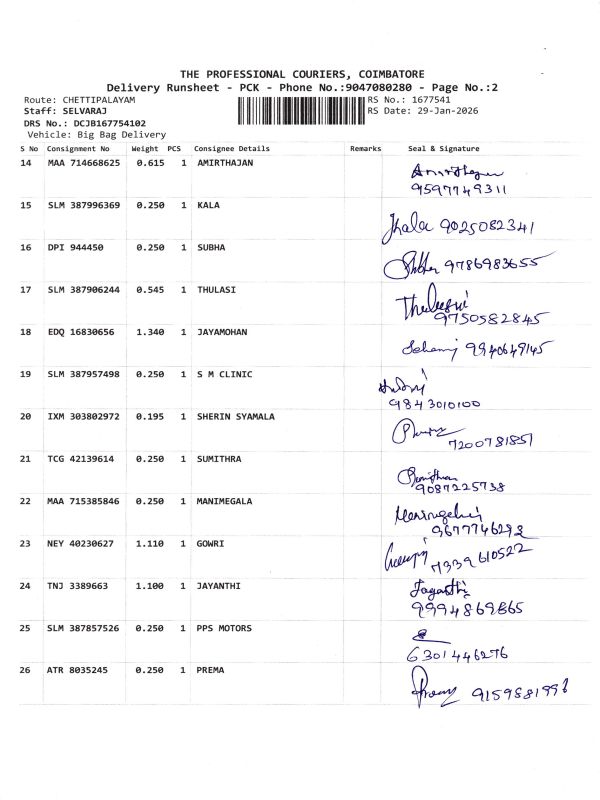 THE PROFESSIONAL COURIERS, COIMBATORE
Delivery Runsheet - PCK - Phone No.:9047080280 - Page No.:2
Route: CHETTIPALAYAM
RS No.: 1677541
Staff: SELVARAJ
RS Date: 29-Jan-2026
DRS No.: DCJB167754102
Vehicle: Big Bag Delivery
S No Consignment No Weight PCS Consignee Details Remarks Seal & Signature
14 MAA 714668625 0.615 1 AMIRTHAJAN
9597749311
15 SLM 387996369 0.250 1 KALA
Kala 9025082341
16 DPI 944450 0.250 1 SUBHA
9786983655
17 SLM 387906244 0.545 1 THULASI
9750582845
18 EDQ 16830656 1.340 1 JAYAMOHAN
9940649145
19 SLM 387957498 0.250 1 S M CLINIC
9843010100
20 IXM 303802972 0.195 1 SHERIN SYAMALA
7200781851
21 TCG 42139614 0.250 1 SUMITHRA
9087225738
22 MAA 715385846 0.250 1 MANIMEGALA
9677746293
23 NEY 40230627 1.110 1 GOWRI
7339610522
24 TNJ 3389663 1.100 1 JAYANTHI
Jayanthi
9994869865
25 SLM 387857526 0.250 1 PPS MOTORS
6301446276
26 ATR 8035245 0.250 1 PREMA
9159881996